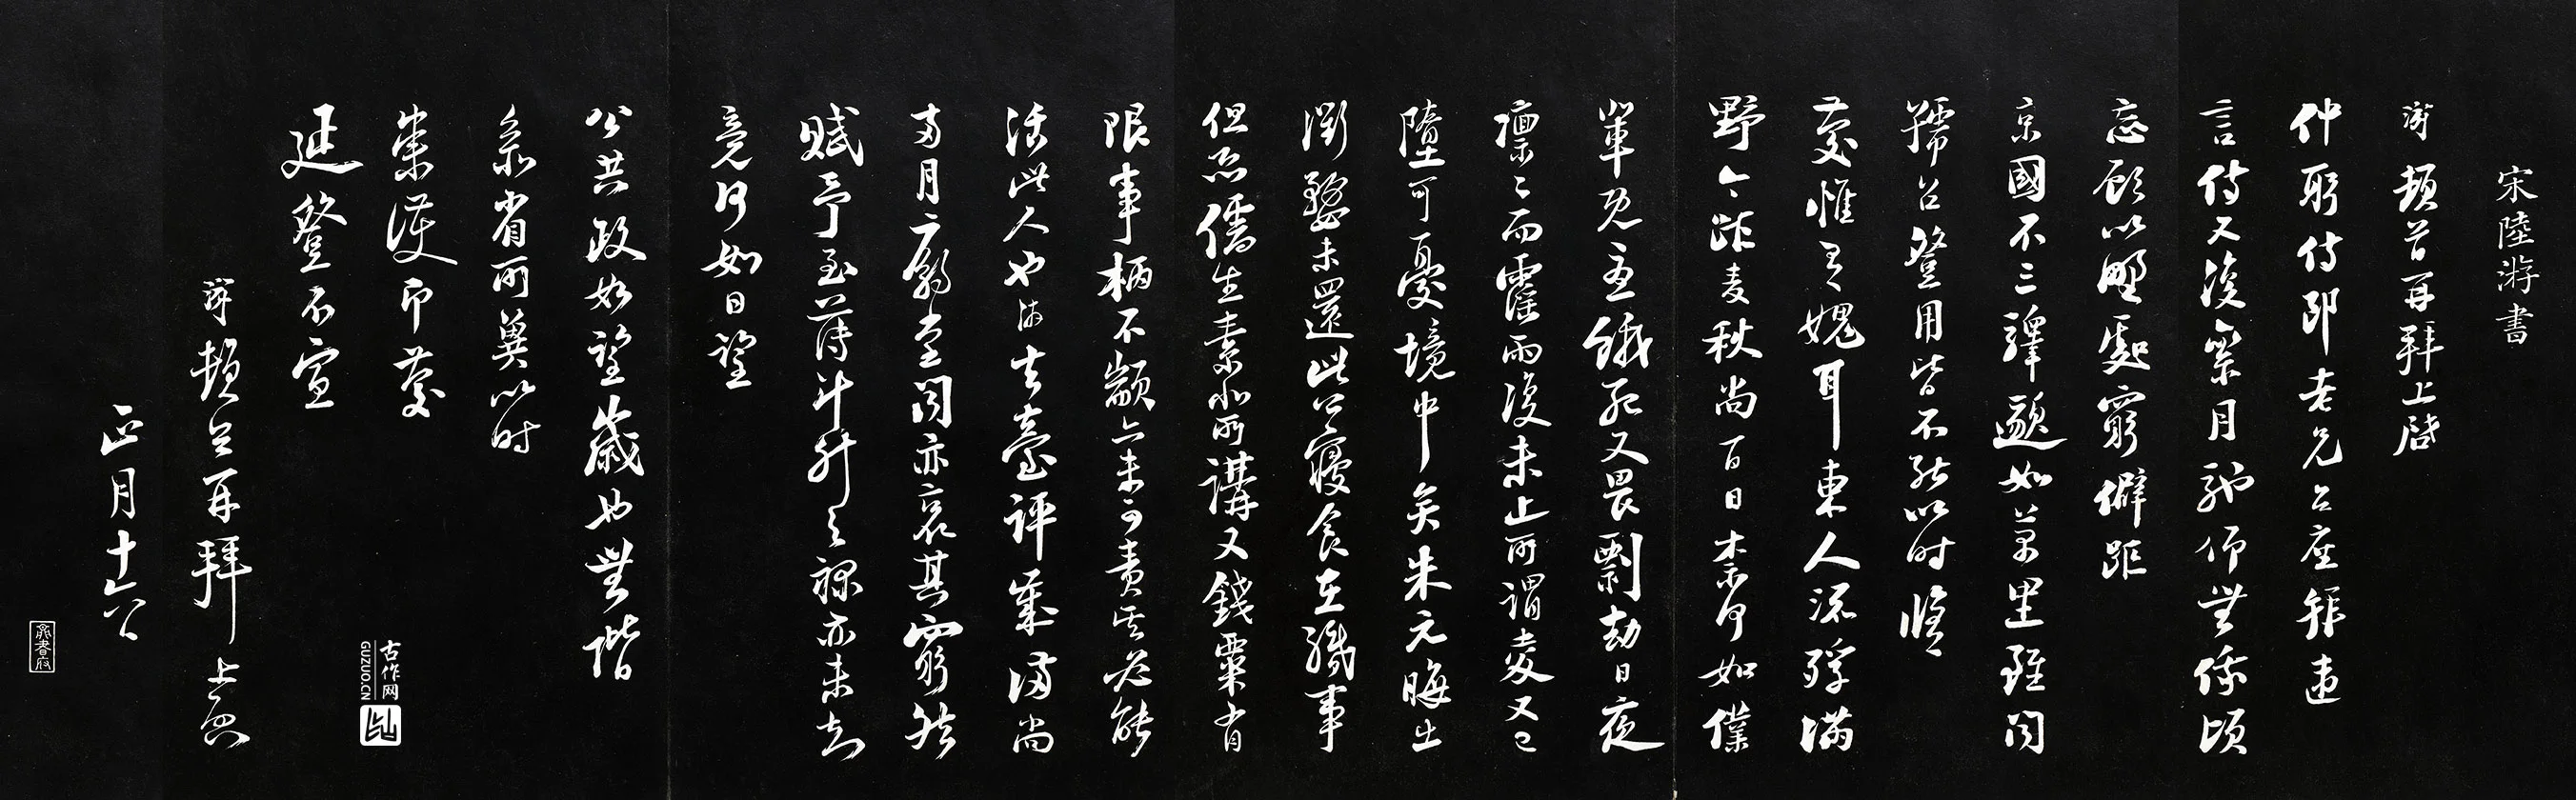 宋陸游書
游頓首再拜上啓
仲躬侍郎老兄台座拜違
言侍又復累月馳仰無俄頃
忘顧以野處窮僻距
京國不三驛邈如萬里雖聞
召登用皆不能以時修
慶惟有愧耳東人流殍滿
野今距麥秋尚百日奈何如僕
輩既憂餓死又畏剽劫日夜
凜〻而霪雨復未止所謂麥又已
墮可憂境中矣朱元晦出
衢婺未還此公寢食在職事
但恐儒生素非所講又錢粟有
限事柄不顓亦未可責其必能
活此人也游去臺評歲滿尚
兩月廟堂聞亦哀其窮然
賦予至薄斗升之祿亦未知
竟何如日望
公共政如望歲也無階
參省所冀以時
崇護即慶
延登不宣
游頓首再拜上啓
正月十六日
古作网
GUZUO.CN